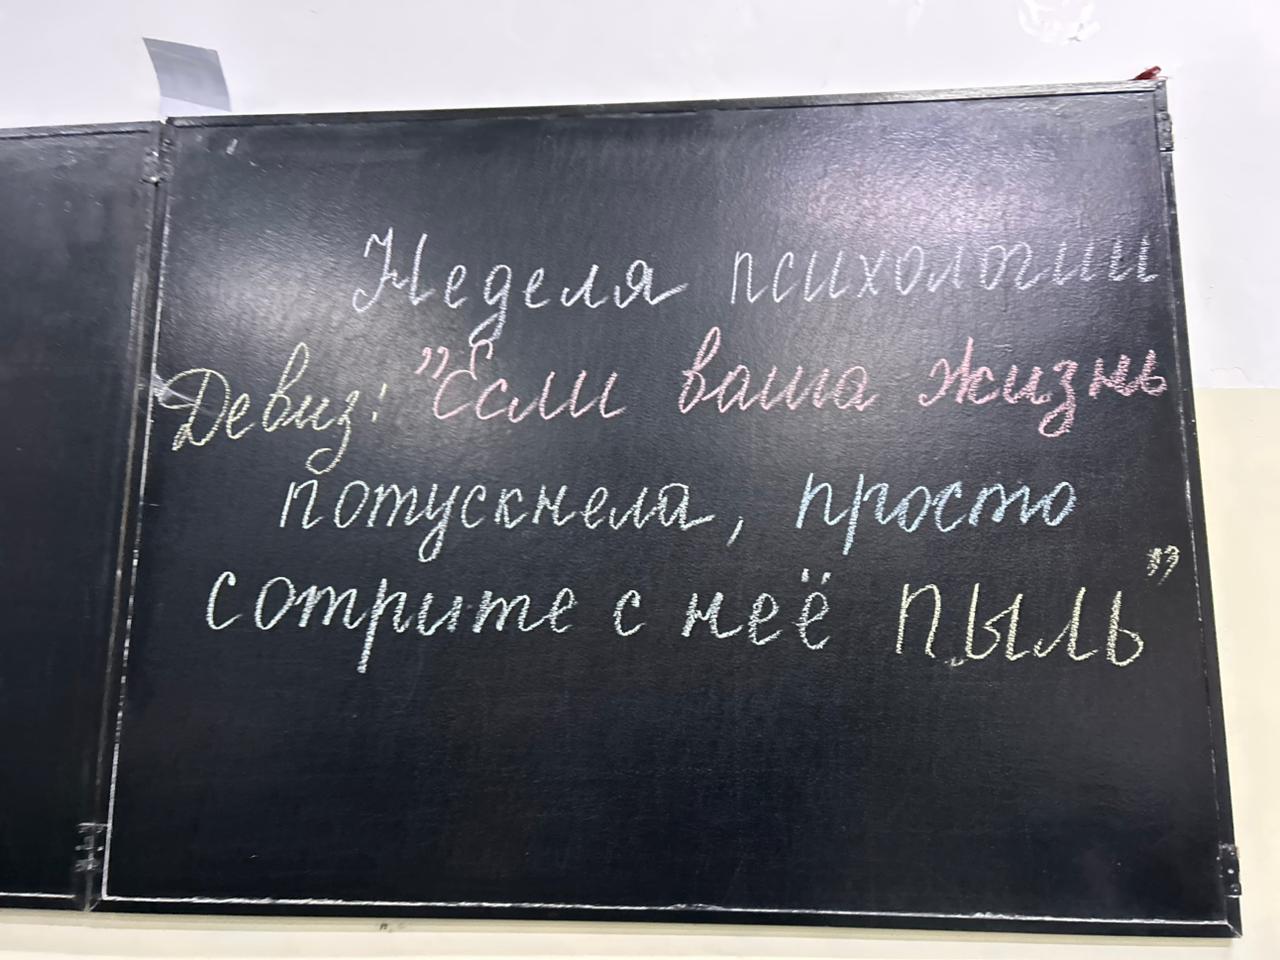 Неделя психологии
Девиз: "Если ваша жизнь
потускнела, просто
сотрите с неё пыль"